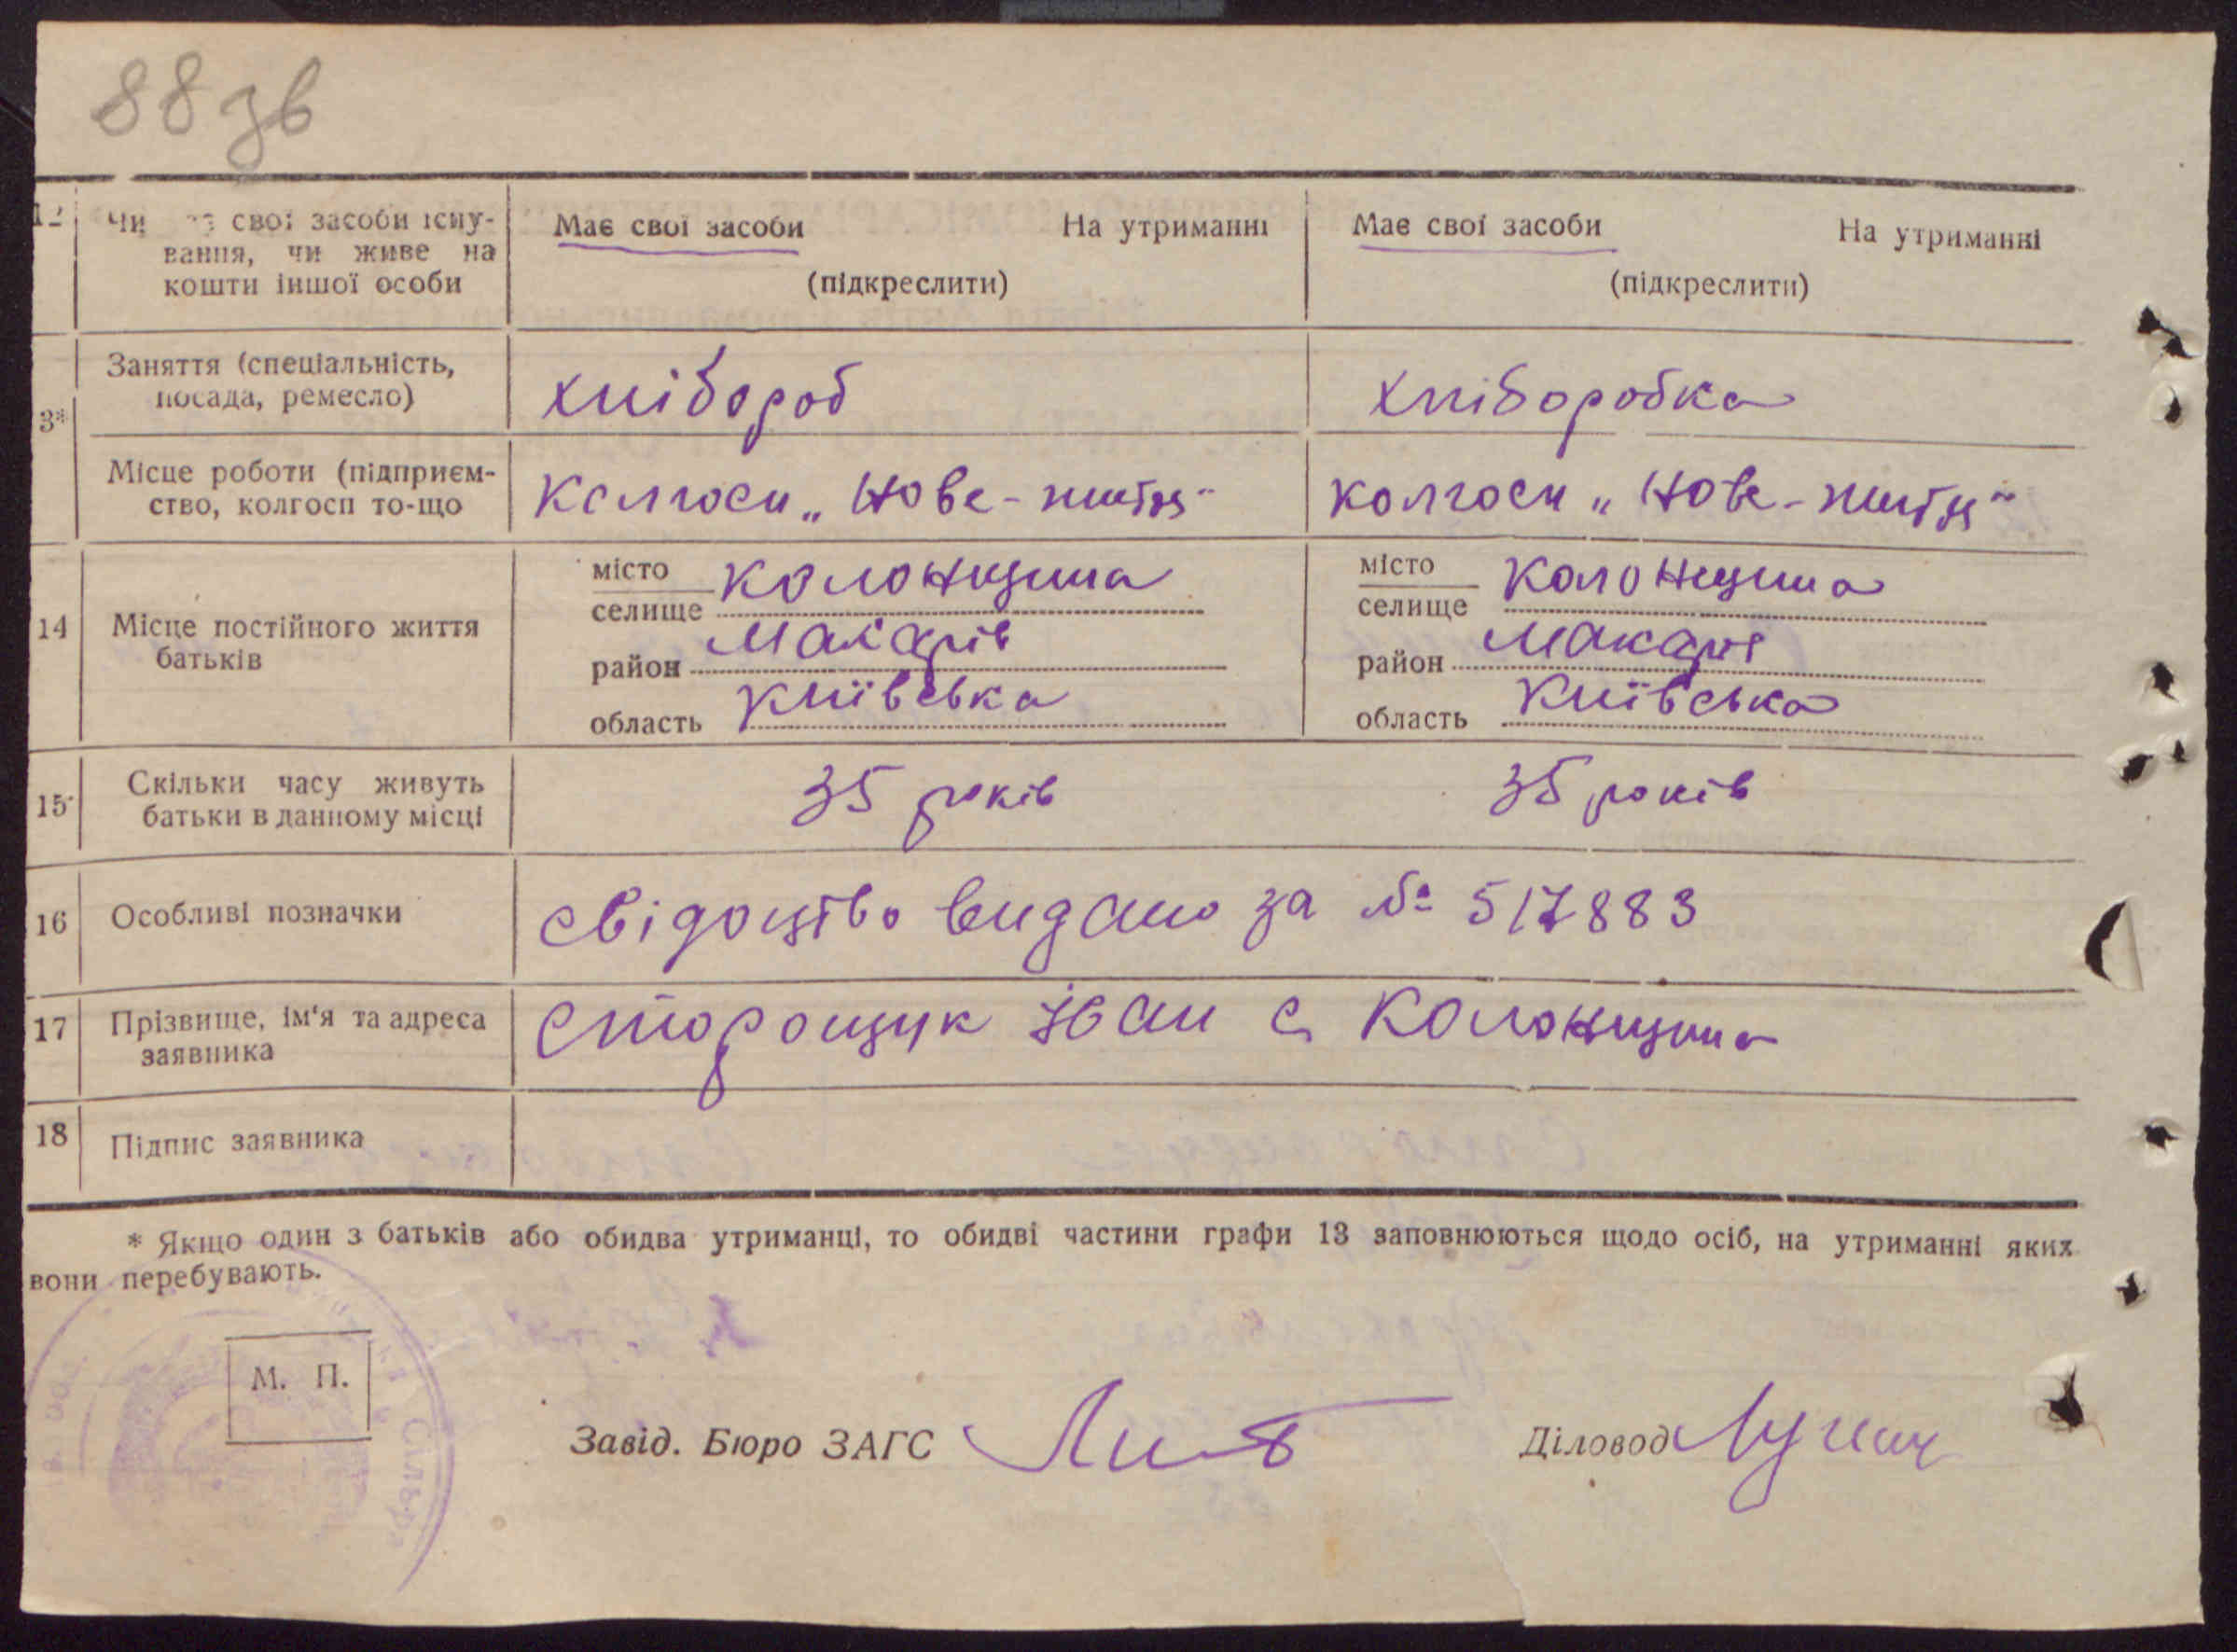 88 зв
12 Чи має свої засоби існу-
вання, чи живе на
кошти іншої особи
Має свої засоби На утриманні
(підкреслити)
Має свої засоби На утриманні
(підкреслити)
3* Заняття (спеціальність,
посада, ремесло)
хлібороб
хліборобка
Місце роботи (підприєм-
ство, колгосп то-що
Колгосп „Нове-життя"
колгосп „Нове-життя"
14 Місце постійного життя
батьків
місто
селище Колонщина
район Макарів
область Київська
місто
селище Колонщина
район Макарів
область Київська
15 Скільки часу живуть
батьки в данному місці
35 років
35 років
16 Особливі позначки
свідоцтво видано за № 517883
17 Прізвище, ім'я та адреса
заявника
Сторощук Іван с. Колонщина
18 Підпис заявника
* Якщо один з батьків або обидва утриманці, то обидві частини графи 13 заповнюються щодо осіб, на утриманні яких
вони перебувають.
М. П.
Завід. Бюро ЗАГС
Діловод